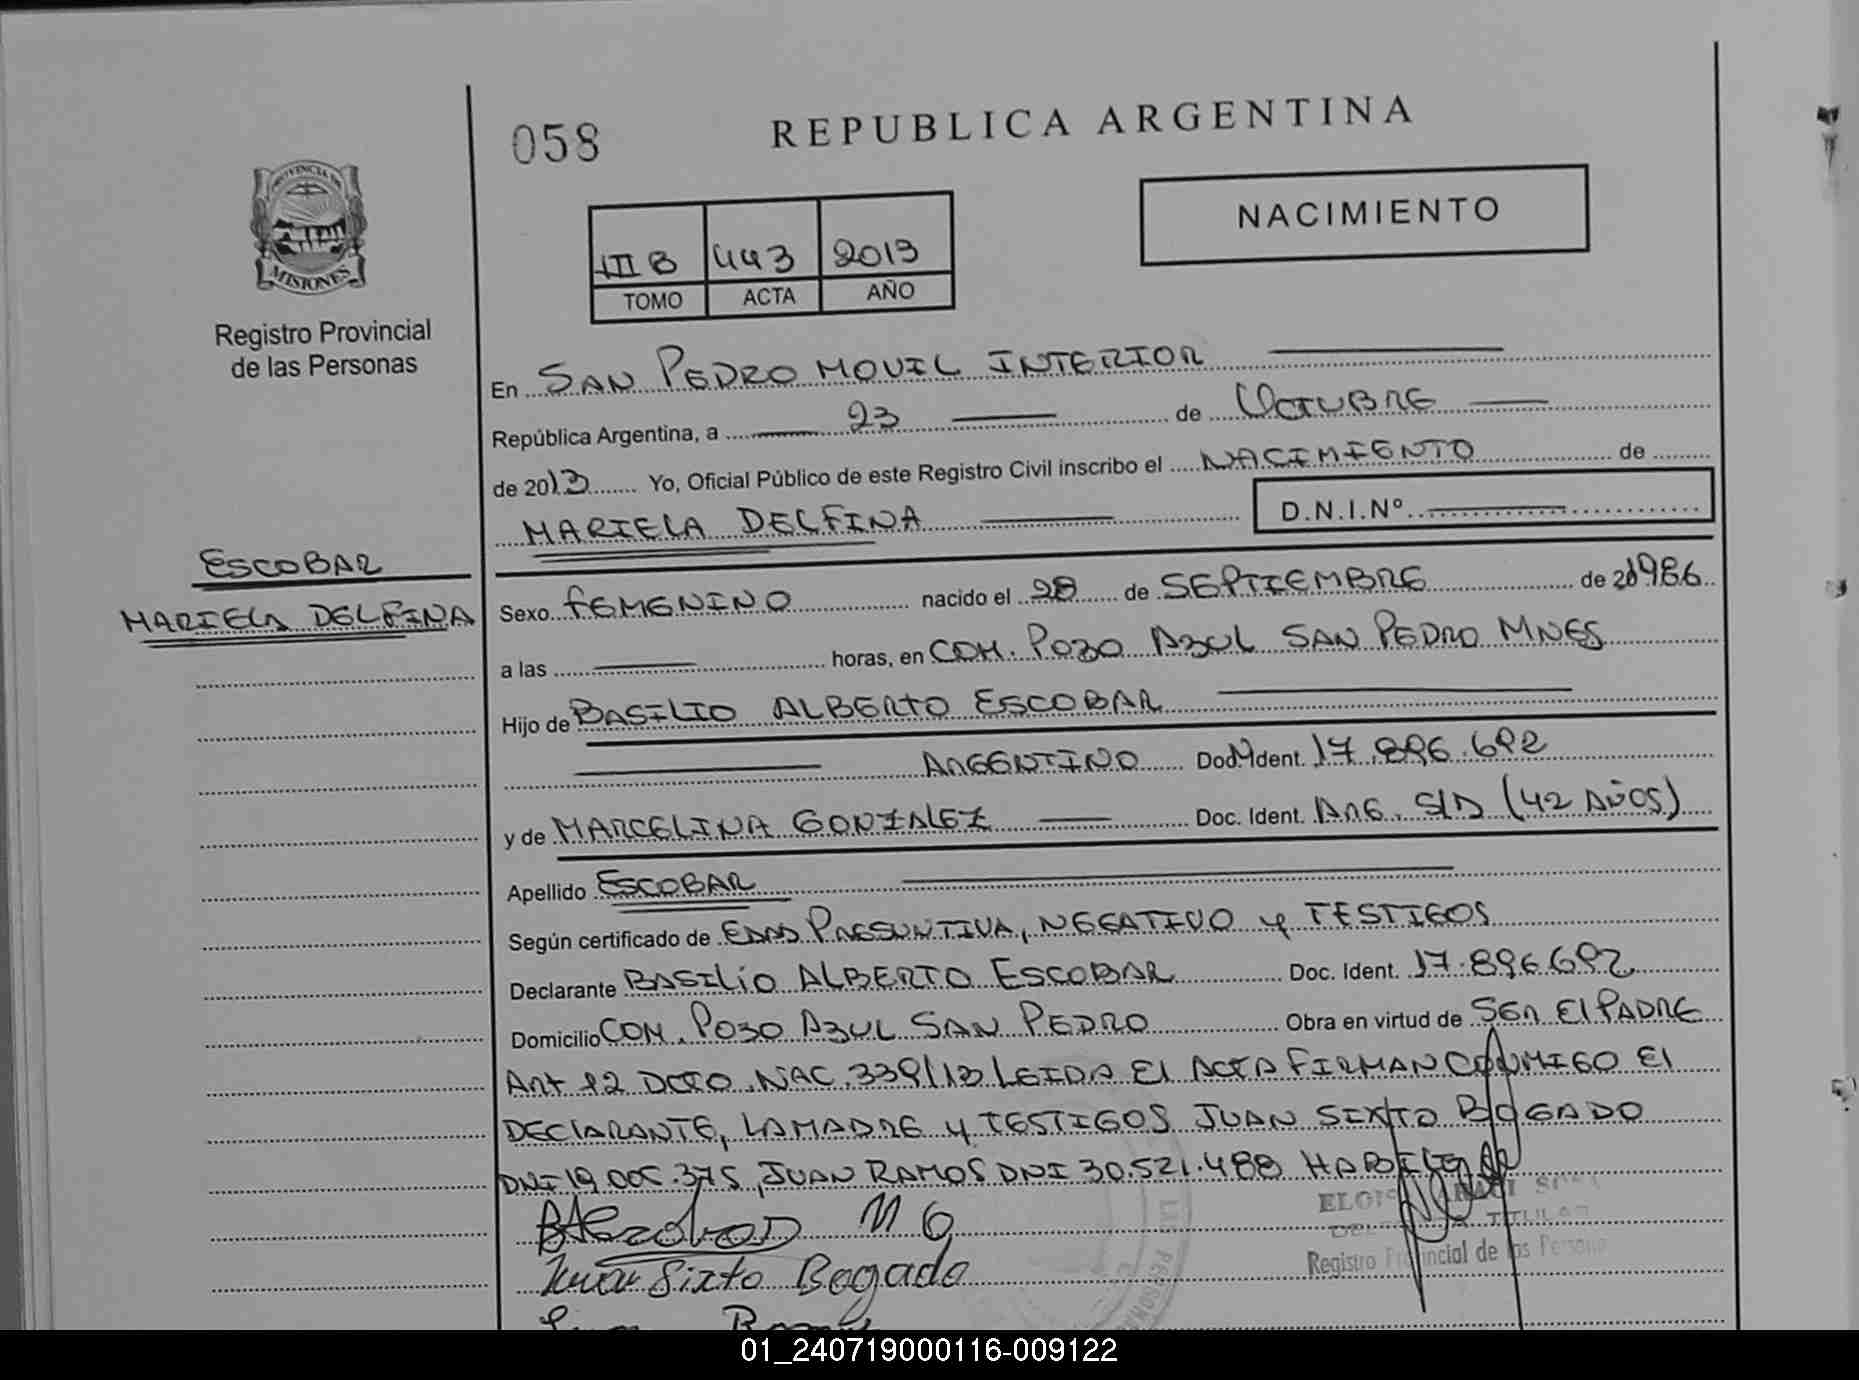 058
REPUBLICA ARGENTINA
PROVINCIA DE
MISIONES
Registro Provincial
de las Personas
III B 443 2013
TOMO ACTA AÑO
NACIMIENTO
En SAN PEDRO MOVIL INTERIOR
República Argentina, a 23 de OCTUBRE
de 2013 Yo, Oficial Público de este Registro Civil inscribo el NACIMIENTO de
MARIELA DELFINA D.N.I.Nº
ESCOBAR
MARIELA DELFINA
Sexo FEMENINO nacido el 28 de SEPTIEMBRE de 1986
a las horas, en COM. POZO AZUL SAN PEDRO MNES
Hijo de BASILIO ALBERTO ESCOBAR
ARGENTINO Doc. Ident. 17.896.692
y de MARCELINA GONZALEZ Doc. Ident. ARG. S/D (42 AÑOS)
Apellido ESCOBAR
Según certificado de EDAD PRESUNTIVA, NEGATIVO y TESTIGOS
Declarante BASILIO ALBERTO ESCOBAR Doc. Ident. 17.896.692
Domicilio COM. POZO AZUL SAN PEDRO Obra en virtud de SER El PADRE
Art 12 DCTO. NAC. 339/13 LEIDA El ACTA FIRMAN CONMIGO El
DECLARANTE, LA MADRE y TESTIGOS JUAN SIXTO BOGADO
DNI 19.005.375, JUAN RAMOS DNI 30.521.488
M G
Juan Sixto Bogado
TITULAR
Registro Provincial de las Personas
01_240719000116-009122